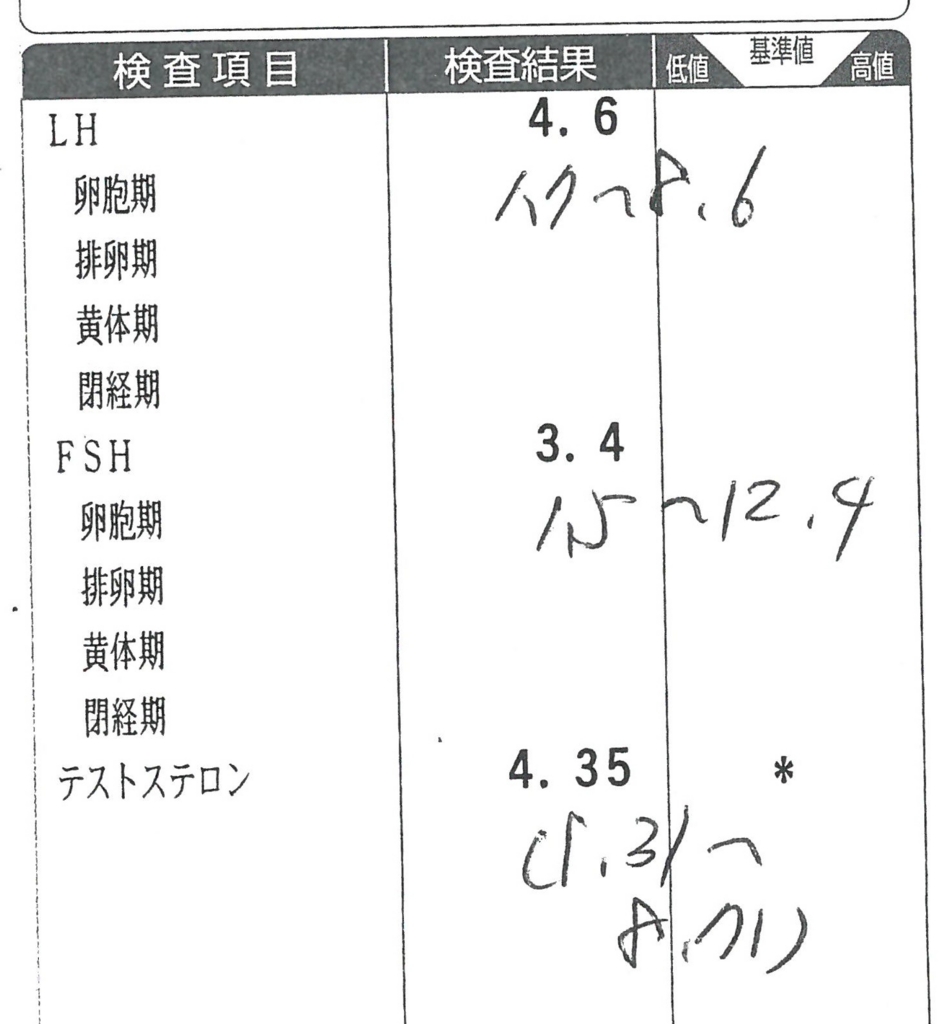 検査項目 検査結果 低値 基準値 高値
LH 4.6
卵胞期 1.7~8.6
排卵期
黄体期
閉経期
FSH 3.4
卵胞期 1.5~12.4
排卵期
黄体期
閉経期
テストステロン 4.35 *
(1.31~
8.71)